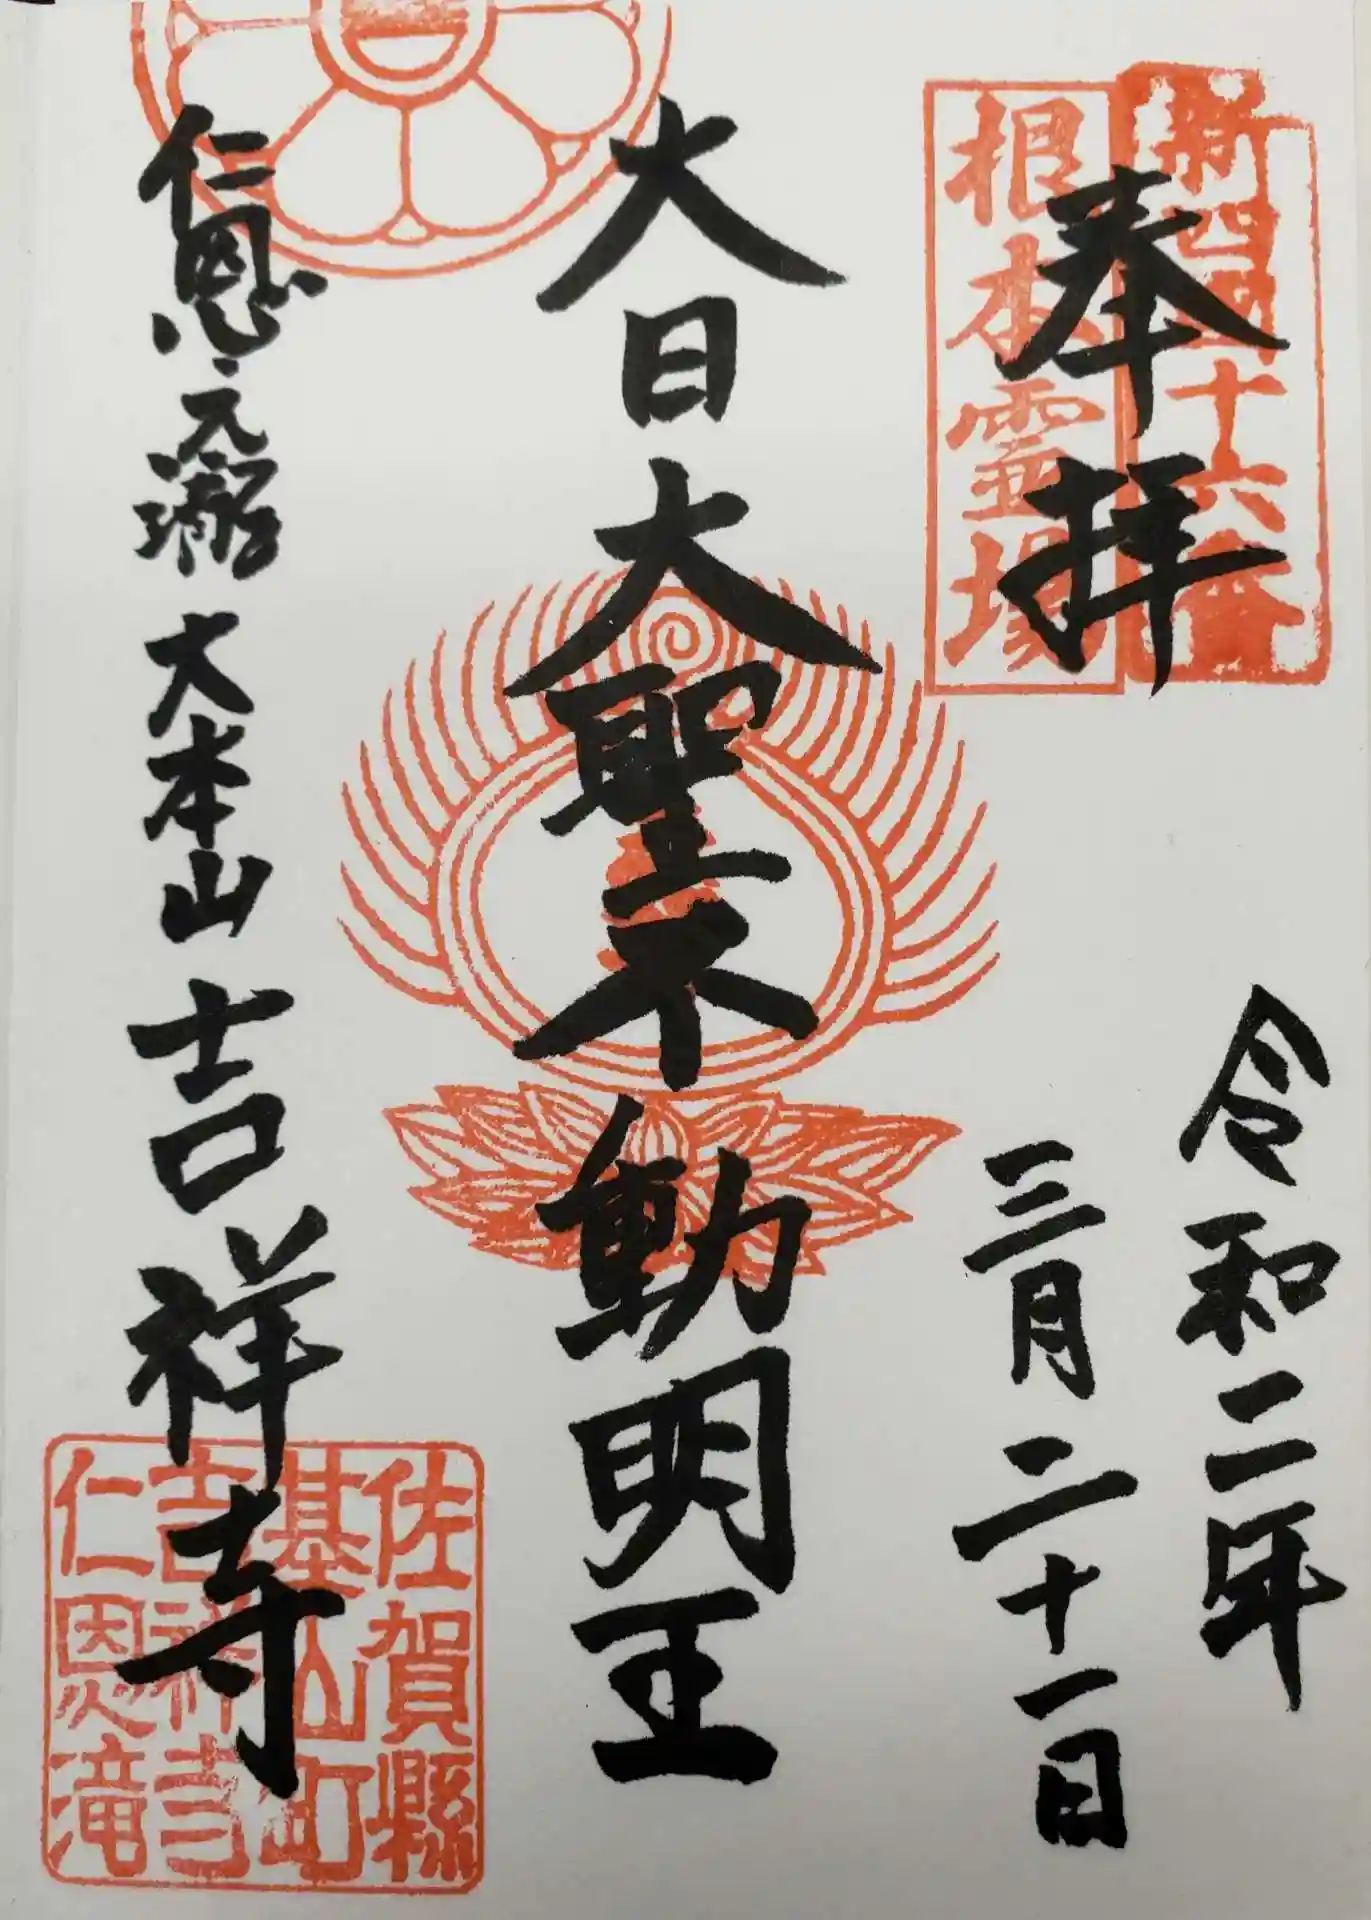 新四国十六番
奉拝
根本霊場
令和二年
三月二十一日
大日大聖不動明王
仁恩之滝 大本山 吉祥寺
佐賀縣
基山町
吉祥寺
仁恩滝